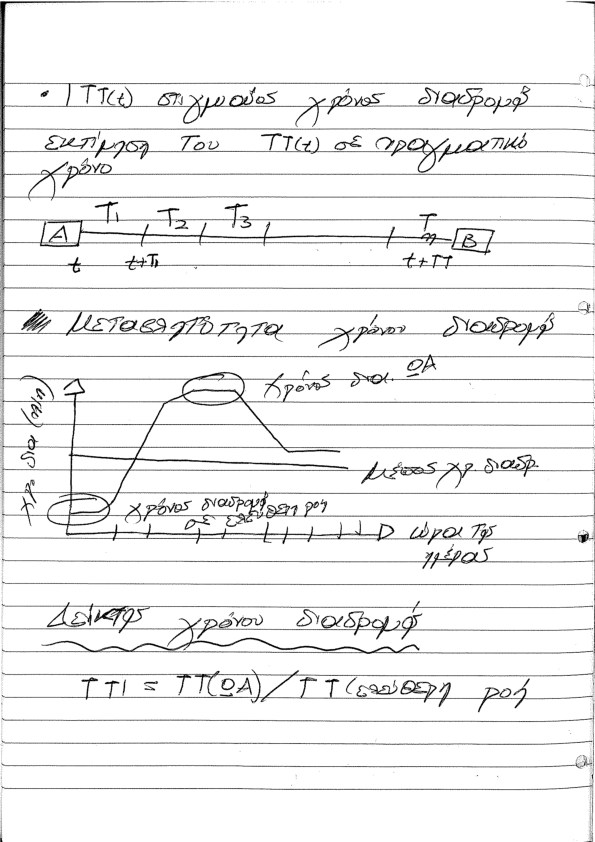 • ITT(t) στιγμιαίος χρόνος διαδρομής
εκτίμηση του TT(t) σε πραγματικό
χρόνο
T1 T2 T3 Tη
A B
t t+T1 t+TT
Μεταβλητότητα χρόνου διαδρομής
χρόνος δια. ΩΑ
χρ. δια (min)
Μέσος χρ. διαδρ.
χρόνος διαδρομής
σε ελεύθερη ροή
ώρα της
ημέρας
Δείκτης χρόνου διαδρομής
TTI = TT(ΩA) / TT(ελεύθερη ροή